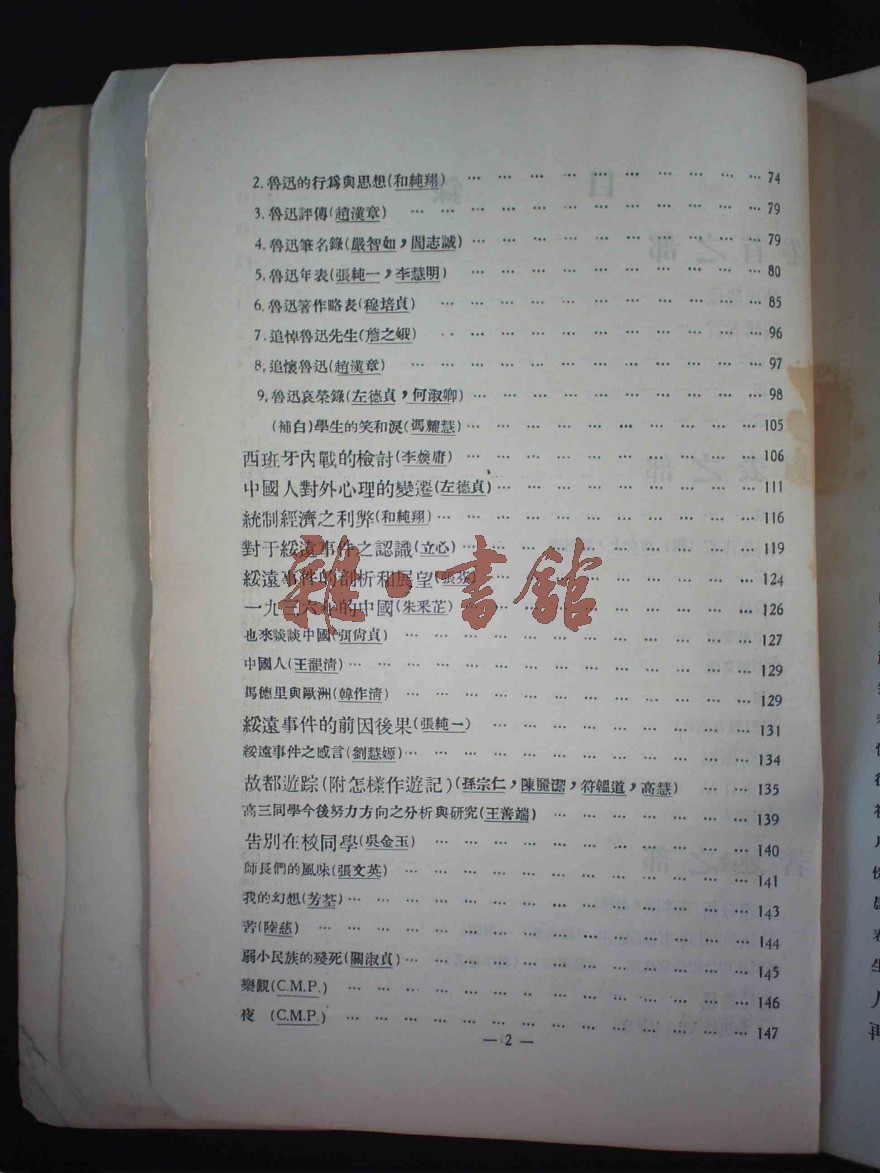 2. 魯迅的行爲與思想(和純翔) … … … … … … … … … … 74
3. 魯迅評傳(趙漢章) … … … … … … … … … … … … 79
4. 魯迅筆名錄(嚴智如，閻志誠) … … … … … … … … … … 79
5. 魯迅年表(張純一，李慧明) … … … … … … … … … … 80
6. 魯迅箸作略表(穆培貞) … … … … … … … … … … … 85
7. 追悼魯迅先生(詹之娥) … … … … … … … … … … … 96
8. 追懷魯迅(趙漢章) … … … … … … … … … … … … 97
9. 魯迅哀榮錄(左德貞，何淑卿) … … … … … … … … … … 98
(補白)學生的笑和淚(馮耀慧) … … … … … … … … … … 105
西班牙內戰的檢討(李煥庸) … … … … … … … … … … 106
中國人對外心理的變遷(左德貞) … … … … … … … … … 111
統制經濟之利弊(和純翔) … … … … … … … … … … … 116
對于綏遠事件之認識(立心) … … … … … … … … … … 119
綏遠事件的剖析和展望(張 … … … … … … … … … 124
一九三六年的中國(朱采芷) … … … … … … … … … … 126
也來談談中國(珥尙貞) … … … … … … … … … … … 127
中國人(王龍淸) … … … … … … … … … … … … … 129
馬德里與歐洲(韓作淸) … … … … … … … … … … … 129
綏遠事件的前因後果(張純一) … … … … … … … … … 131
綏遠事件之感言(劉慧嫄) … … … … … … … … … … … 134
故都遊踪(附怎樣作遊記)(孫宗仁，陳麗潔，符韞道，高慧) … … … 135
高三同學今後努力方向之分析與研究(王善端) … … … … … … … 139
告別在校同學(吳金玉) … … … … … … … … … … … 140
師長們的風味(張文英) … … … … … … … … … … … 141
我的幻想(芳荃) … … … … … … … … … … … … … 143
苦(陸慈) … … … … … … … … … … … … … … 144
弱小民族的殘死(關淑貞) … … … … … … … … … … … 145
樂觀(C.M.P.) … … … … … … … … … … … … … 146
夜 (C.M.P.) … … … … … … … … … … … … … 147
— 2 —
雜·書館